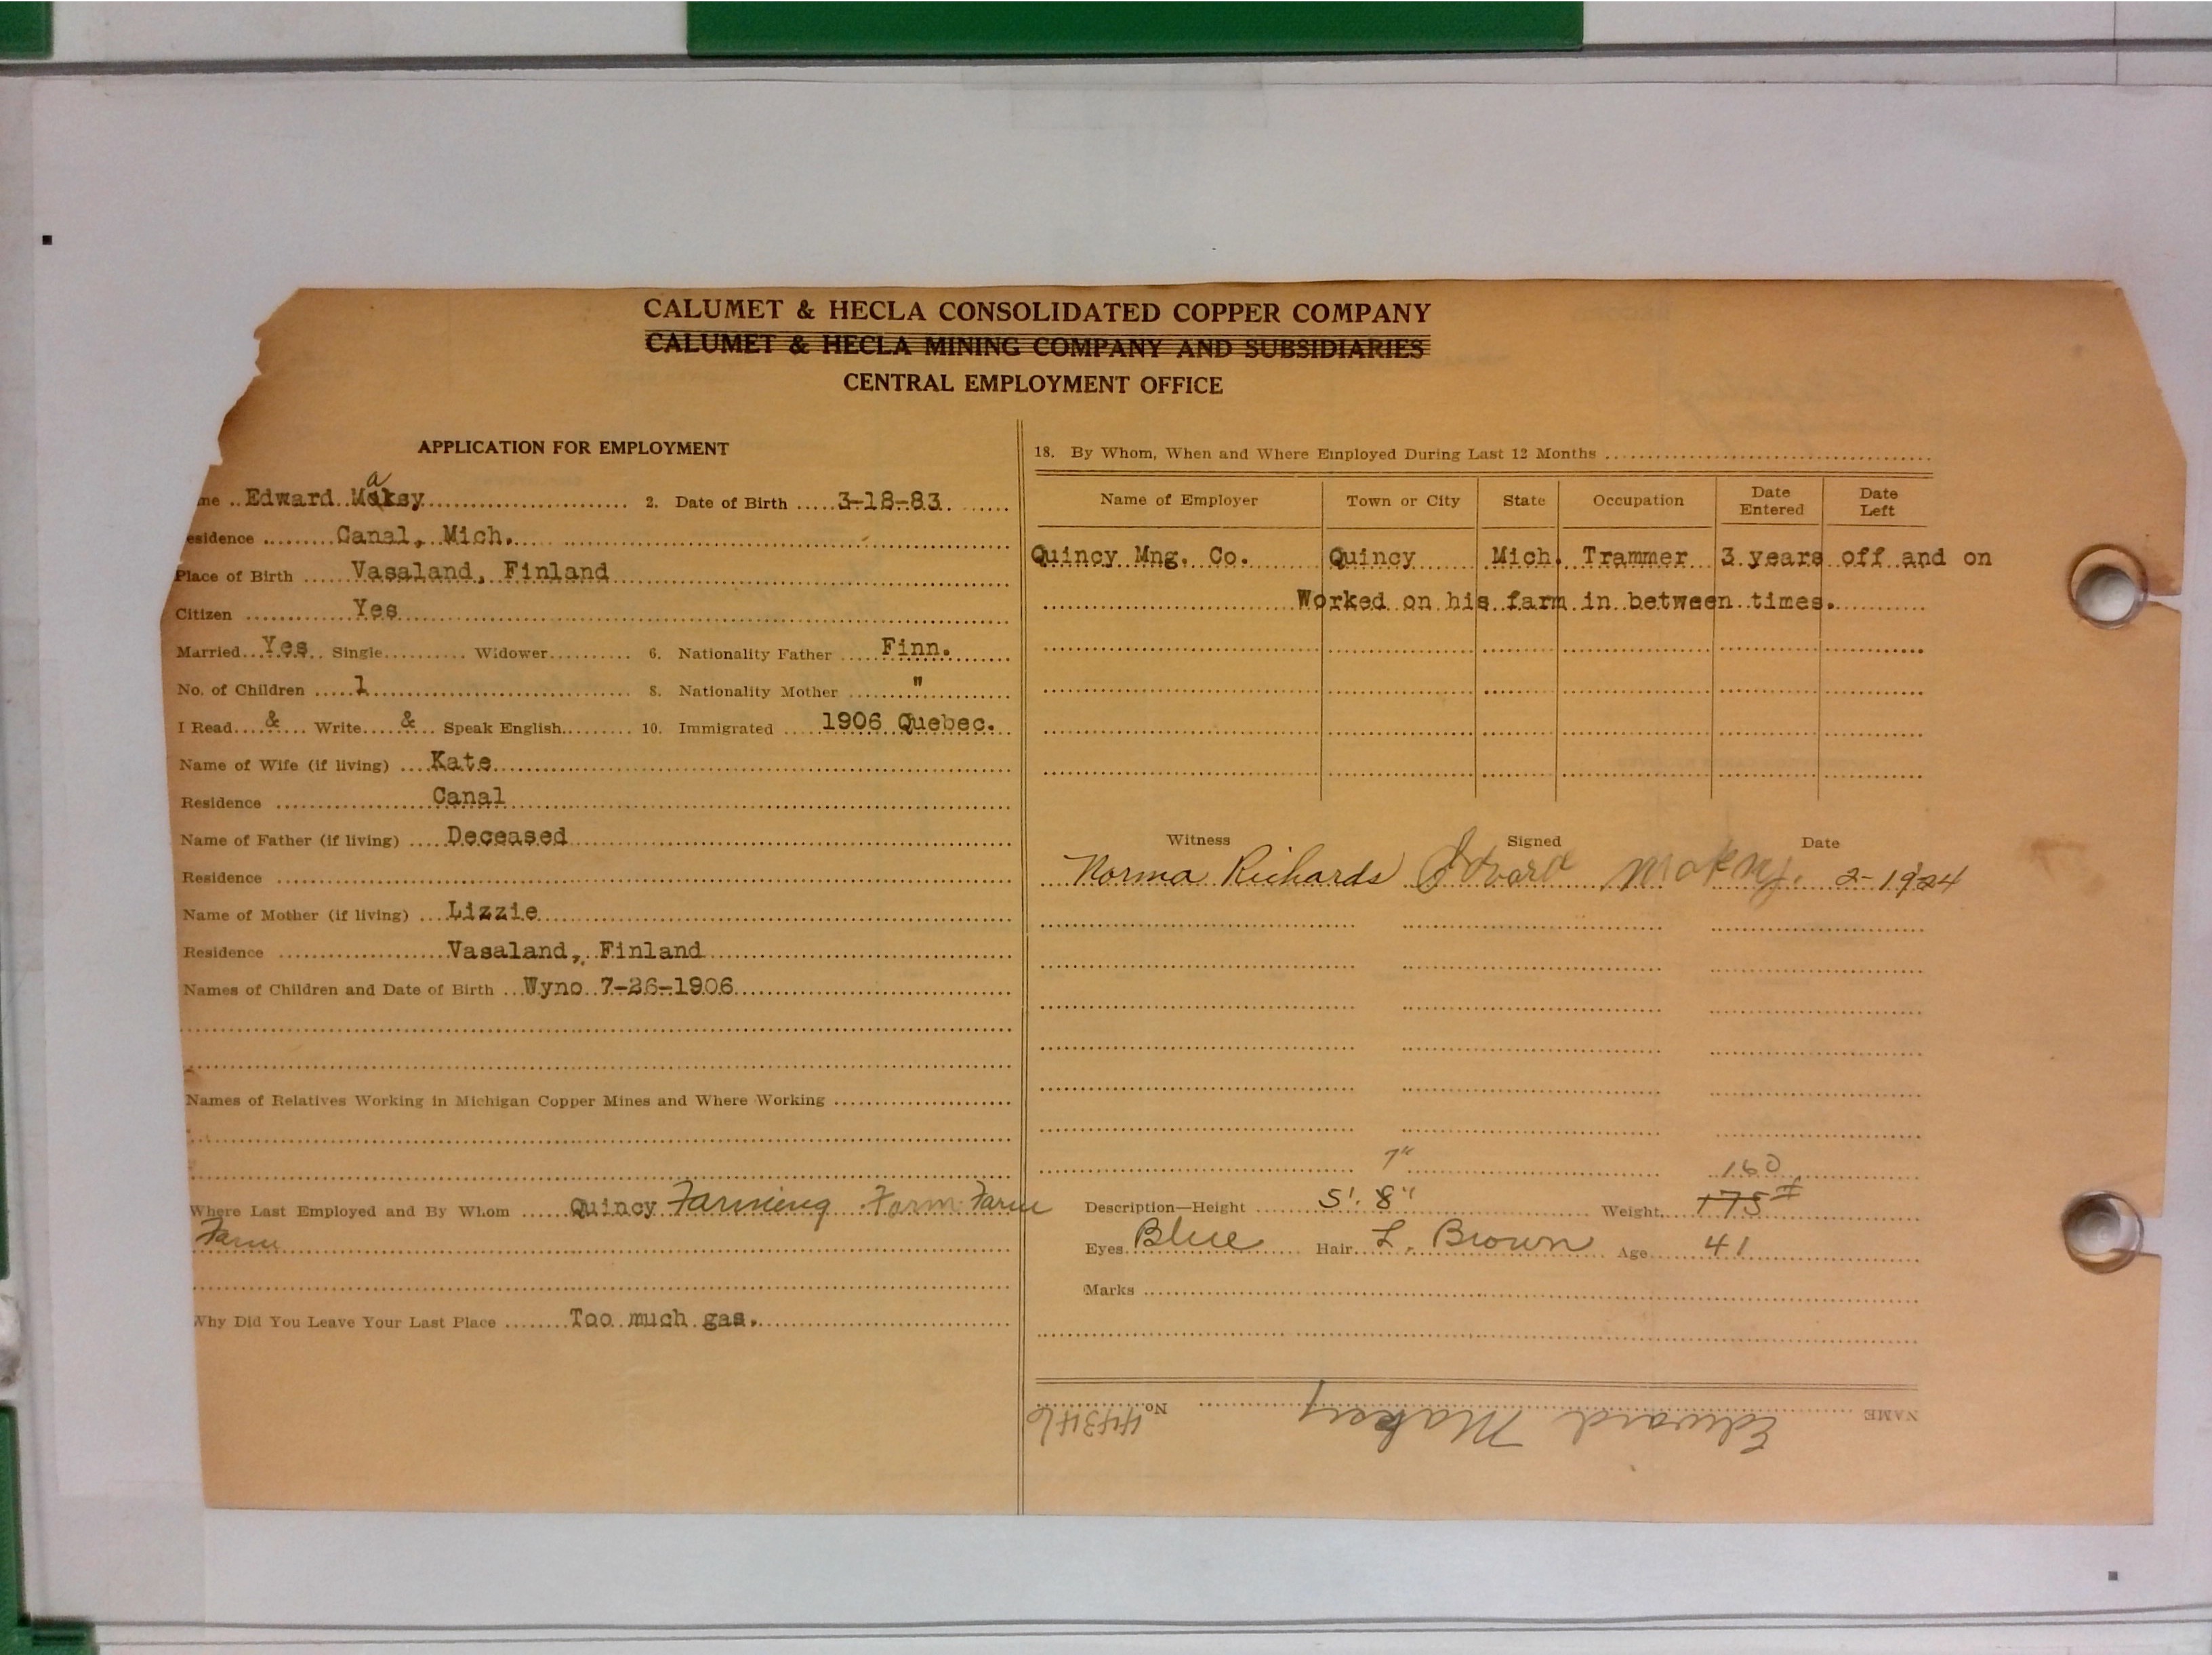 CALUMET & HECLA CONSOLIDATED COPPER COMPANY
CALUMET & HECLA MINING COMPANY AND SUBSIDIARIES
CENTRAL EMPLOYMENT OFFICE
APPLICATION FOR EMPLOYMENT
a
me .. Edward Moksy 2. Date of Birth 3-18-83.
esidence Canal, Mich.
Place of Birth Vasaland, Finland
Citizen Yes
Married Yes Single Widower 6. Nationality Father Finn.
No. of Children 1 8. Nationality Mother "
I Read & Write & Speak English 10. Immigrated 1906 Quebec.
Name of Wife (if living) Kate
Residence Canal
Name of Father (if living) Deceased
Residence
Name of Mother (if living) Lizzie
Residence Vasaland, Finland
Names of Children and Date of Birth Wyno 7-26-1906
Names of Relatives Working in Michigan Copper Mines and Where Working
Where Last Employed and By Whom Quincy Farming Farm Farm
Farm
Why Did You Leave Your Last Place Too much gas.
18. By Whom, When and Where Employed During Last 12 Months
Name of Employer Town or City State Occupation Date Entered Date Left
Quincy Mng. Co. Quincy Mich. Trammer 3 years off and on
Worked on his farm in between times.
Witness Signed Date
Norma Richards Edvard 2-1924
7" 160
Description—Height 5' 8" Weight 175 #
Eyes Blue Hair L. Brown Age 41
Marks
NAME Edward No. 44346